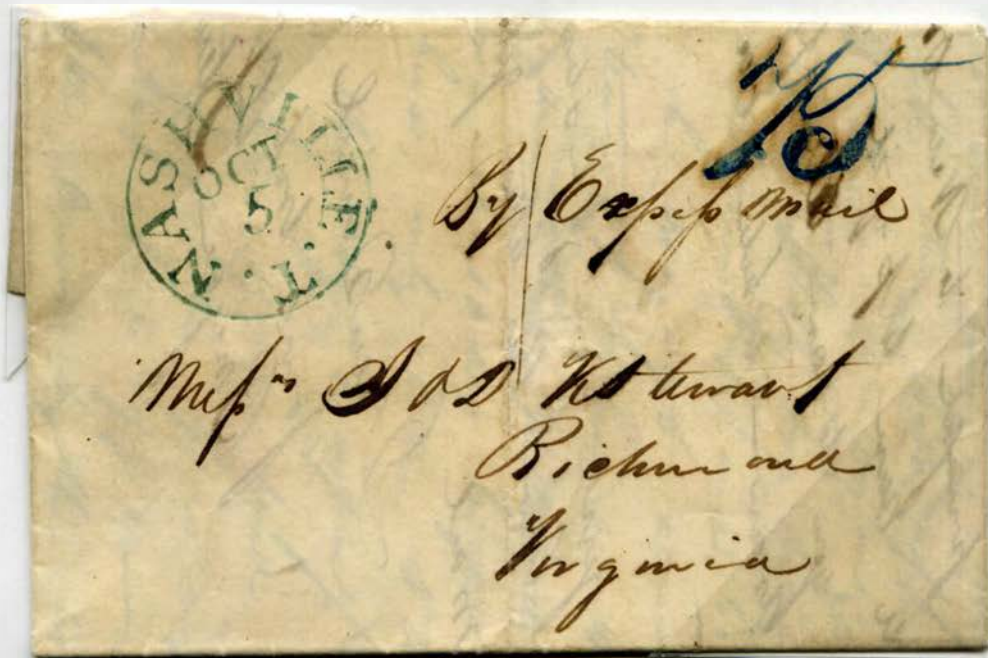 NASHVILLE. T.
OCT
5
By Express Mail
Messrs S & D K Stewart
Richmond
Virginia